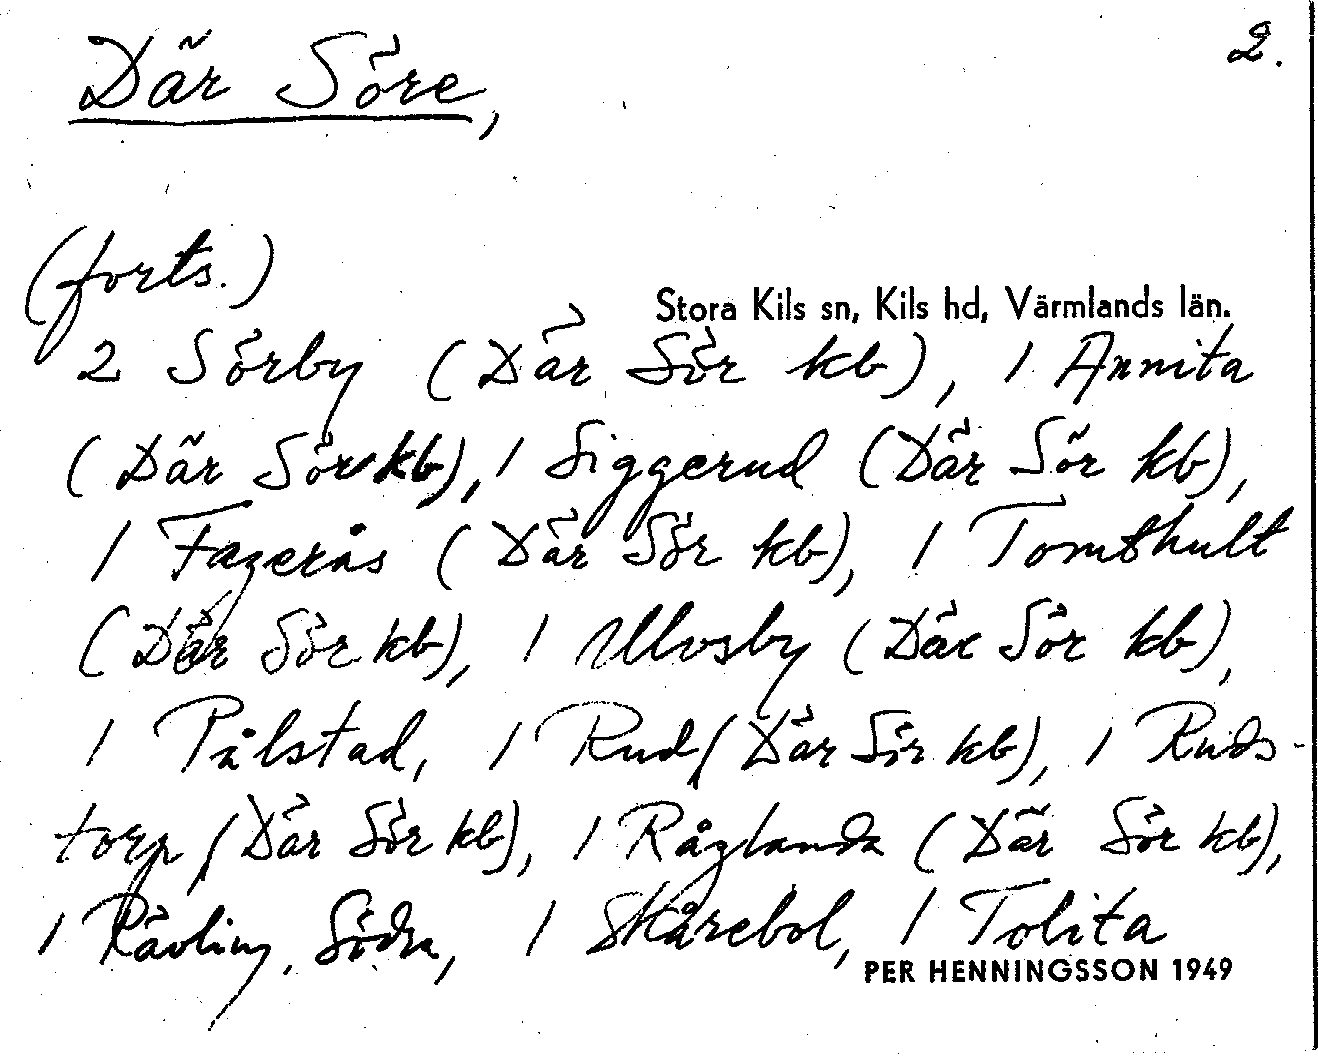 Där Söre, 2.
(forts.)
Stora Kils sn, Kils hd, Värmlands län.
2 Sörby (Där Sör kb), 1 Annita
(Där Sör kb), 1 Siggerud (Där Sör kb),
1 Fagerås (Där Sör kb), 1 Tomthult
(Där Sör kb), 1 Ulvsby (Där Sör kb),
1 Pålstad, 1 Rud (Där Sör kb), 1 Ruds-
torp (Där Sör kb), 1 Råglanda (Där Sör kb),
1 Rävling, Södra, 1 Skårebol, 1 Tolita
PER HENNINGSSON 1949